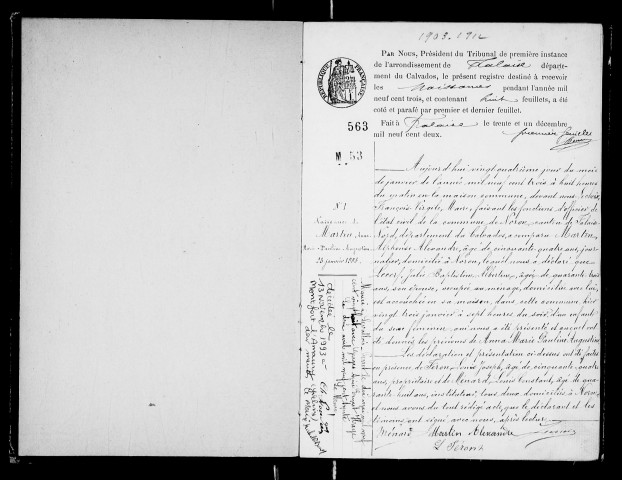 1903-1912
PAR NOUS, Président du Tribunal de première instance
de l'arrondissement de Falaise départe-
ment du Calvados, le présent registre destiné à recevoir
les Naissances pendant l'année mil
neuf cent trois, et contenant huit feuillets, a été
coté et parafé par premier et dernier feuillet.
Fait à Falaise le trente et un décembre
mil neuf cent deux.
premier feuillet
RÉPUBLIQUE FRANÇAISE
563
M 53
N° 1
Naissance de
Martin,
Marie Pauline Augustine
23 janvier 1903.
Aujourd'hui vingt quatrième jour du mois
de janvier de l'année mil neuf cent trois à huit heures
du matin en la maison commune, devant nous
François Virgile, Maire, faisant les fonctions d'officier de
l'état civil de la commune de Noron, canton de Falaise
Nord, département du Calvados, a comparu Martin,
Alphonse Alexandre, âgé de cinquante quatre ans, jour-
nalier, domicilié à Noron, lequel nous a déclaré que
Julie Baptistine Albertine, âgée de quarante trois
ans, son épouse, occupée au ménage, domiciliée avec lui,
est accouchée en sa maison, dans cette commune hier
vingt trois janvier à sept heures du soir d'un enfant
du sexe féminin, qu'il nous a présenté et auquel ont
été donnés les prénoms de Anna Marie Pauline Augustine
Les déclaration et présentation ci-dessus ont été faites
en présence de Féron, Louis Joseph, âgé de cinquante quatre
ans, propriétaire et de Ménard, Louis Constant, âgé de qua-
rante huit ans, instituteur tous deux domiciliés à Noron,
et nous avons du tout rédigé acte, que le déclarant et les
témoins ont signé avec nous, après lecture.
Ménard Martin Alexandre
L Féron
décédée le
13 novembre 1993 à
Montfort l'Amaury